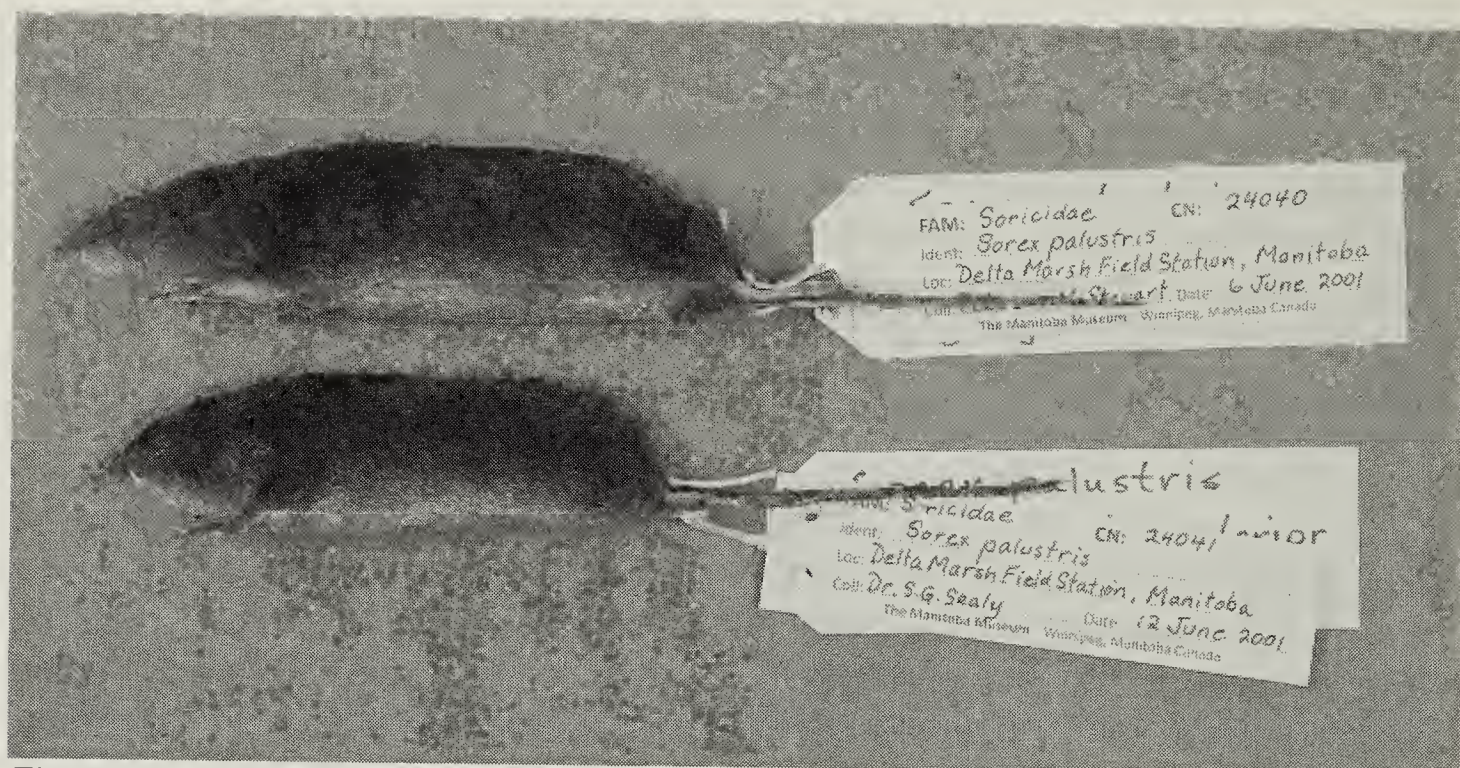 FAM: Soricidae CN: 24040
Ident: Sorex palustris
Loc: Delta Marsh Field Station, Manitoba
Coll: Date 6 June 2001
The Manitoba Museum Winnipeg, Manitoba Canada
palustris
ricidae CN: 24041
Ident: Sorex palustris
Loc: Delta Marsh Field Station, Manitoba
Coll: Dr. S.G. Sealy Date 12 June 2001
The Manitoba Museum Winnipeg, Manitoba Canada